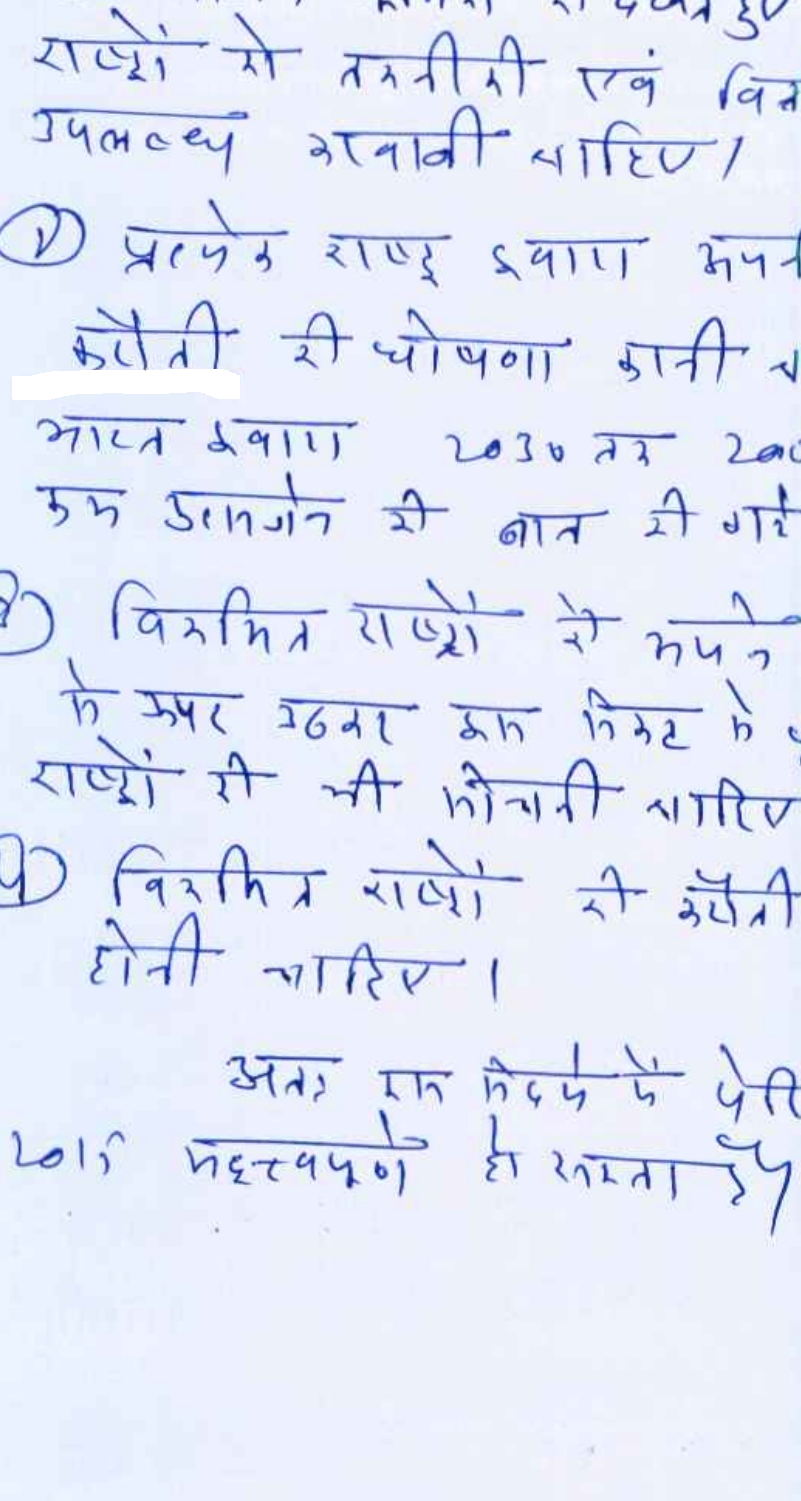 राष्ट्रों को तकनीकी एवं वित्त
उपलब्ध करवानी चाहिए।
प्रत्येक राष्ट्र द्वारा अपनी
कटौती की घोषणा करनी च
भारत द्वारा 2030 तक 200
कम उत्सर्जन की बात की गई
विकसित राष्ट्रों को अपने
से ऊपर उठकर इस निकट के
राष्ट्रों की भी सोचनी चाहिए
विकसित राष्ट्रों की कटौती
होनी चाहिए।
अतः इस संदर्भ में पेरि
2015 महत्त्वपूर्ण हो सकता है